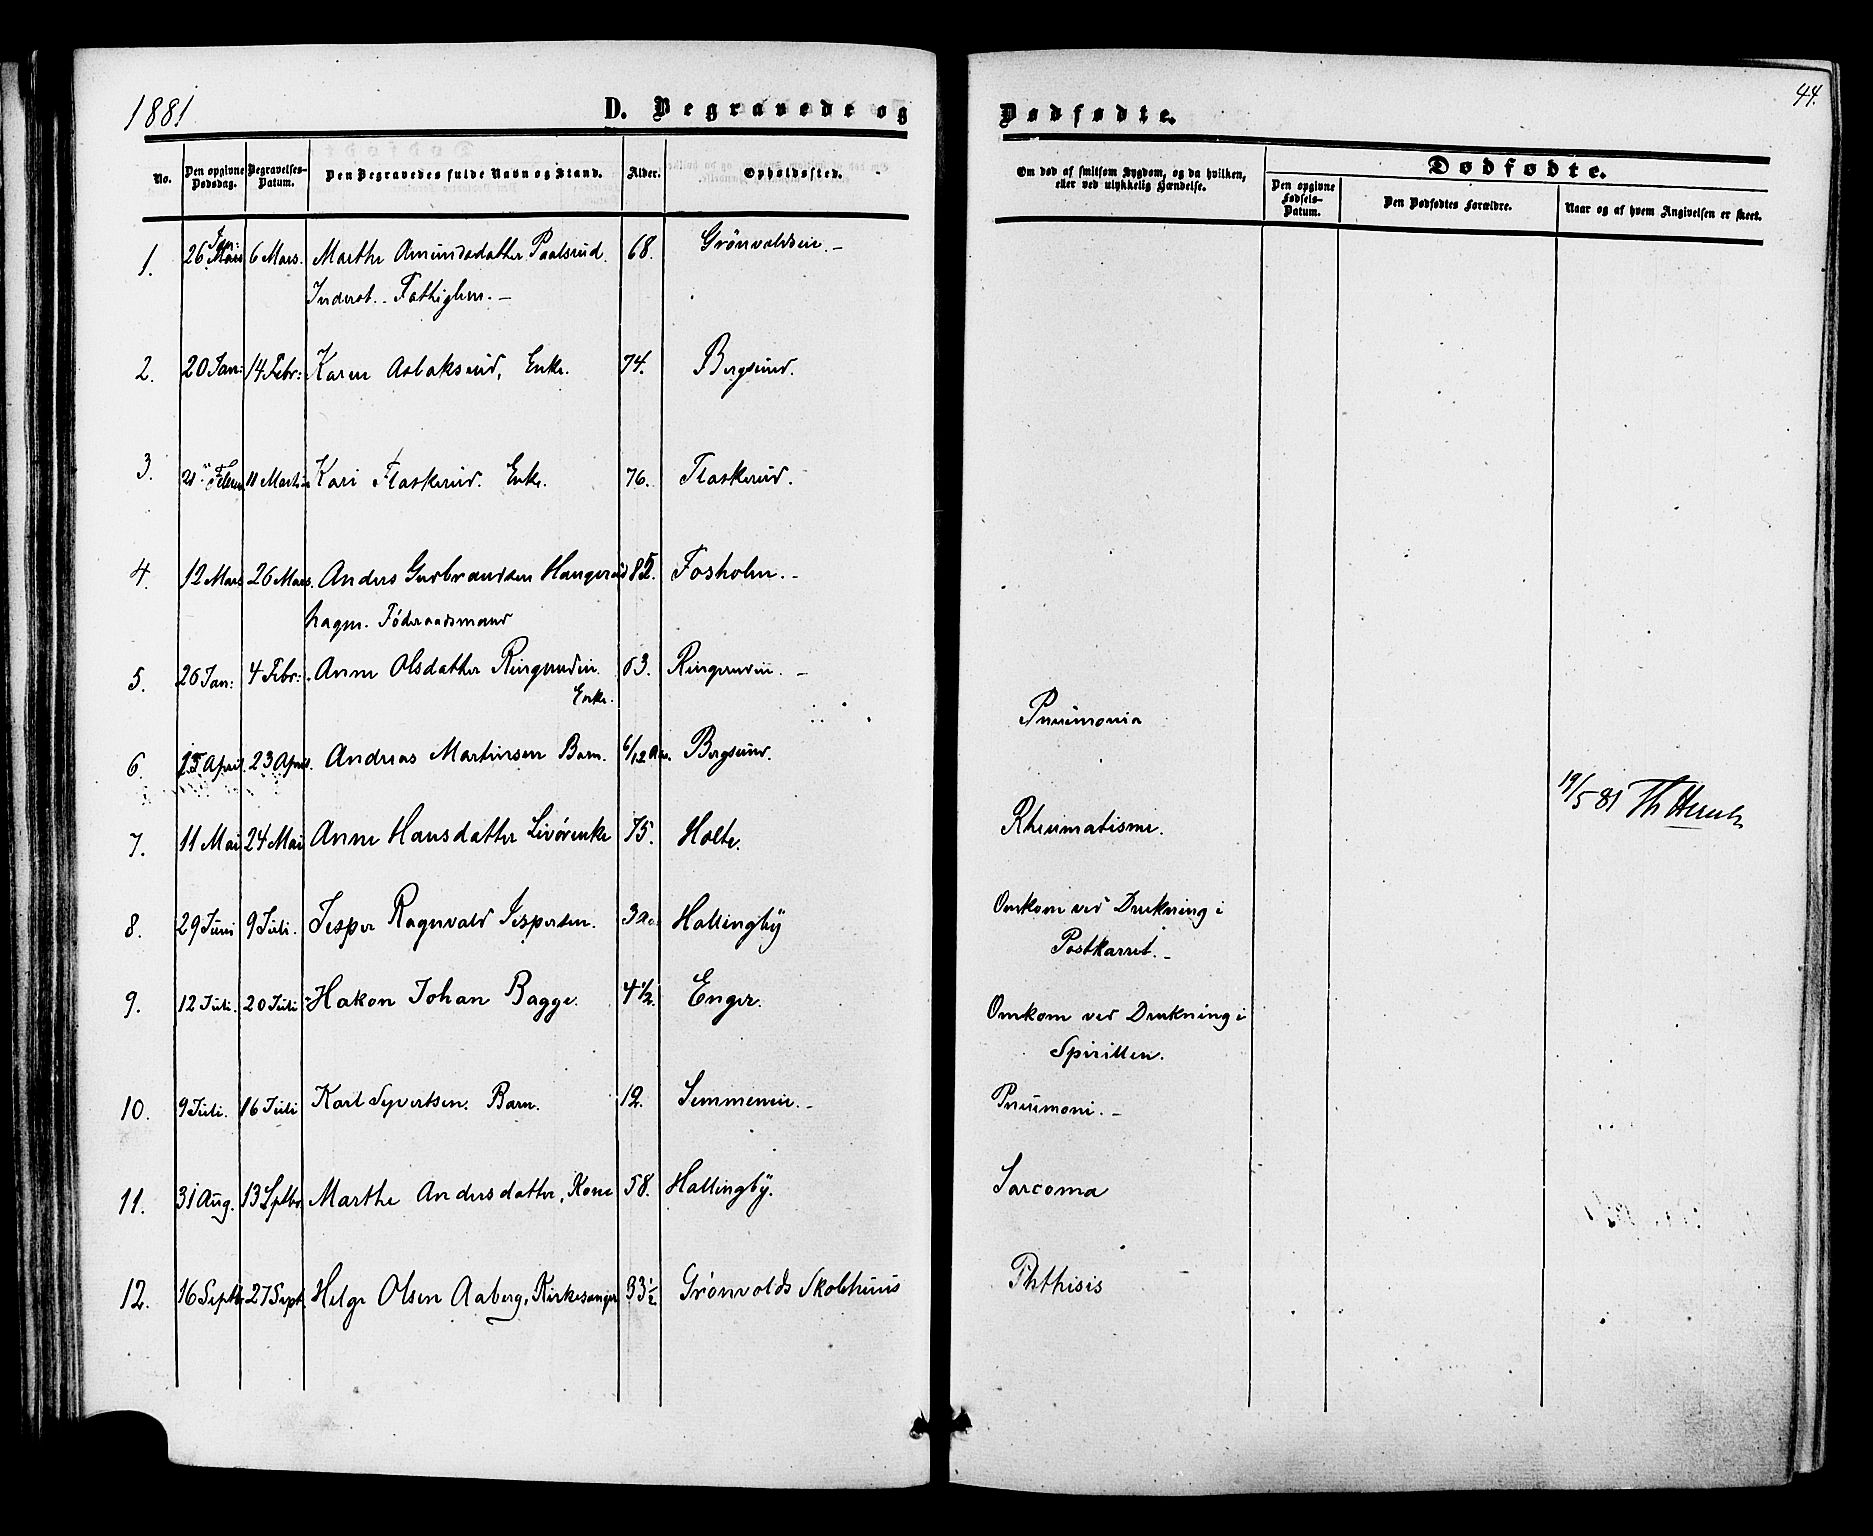 1881
D. Begravede og
Dødfødte.
44.
No.
Den opgivne Dødsdag.
Begravelses-Datum.
Den Begravedes fulde Navn og Stand.
Alder.
Opholdssted.
Om død af smitsom Sygdom, og da hvilken, eller ved ulykkelig Hændelse.
Dødfødte.
Den opgivne Fødsels-Datum.
Den Dødfødtes Forældre.
Naar og af hvem Angivelsen er skeet.
1. 26 Jan: 6 Mars. Marthe Amundsdatter Paalsrud. 68. Grönvoldseie.-
Inderst.. Fattiglem.-
2. 20 Jan: 14 Febr: Karen Aslaksrud, Enke. 74. Bergsund.
3. 21 11 Kari Flaskerud. Enke. 76. Flaskerud.
4. 12 Mars 26 Mars. Anders Gudbrandsen Haugerud 82. Fosholm.-
Føderaadsmand
5. 26 Jan: 4 Febr: Anne Olsdatter Ringerudeie. 63. Ringerudeie.-
Enke.
Pneumonia
6. 15 April 23 April. Andreas Martinsen Barn. 6/12 Aar. Bergsund.
7. 11 Mai 24 Mai Anne Hansdatter 75. Holte. Rheumatisme. 19/5 81
8. 29 Juni 9 Juli. Jesper Ragnvald Jespersen. 3 Aar Hallingby Omkom ved Drukning i
Postkarret.-
9. 12 Juli. 20 Juli Hakon Johan Bagge. 4 1/2. Enger. Omkom ved Drukning i
Spirillen.
10. 9 Juli. 16 Juli Karl Syvertsen. Barn. 12. Semmeneie.- Pneumoni.-
11. 31 Aug. 13 Septbr. Marthe Andersdatter, Kone 58. Hallingby. Sarcoma
12. 16 Septbr 27 Sept. Helge Olsen Aaberg, Kirkesanger 33½ Grönvolds Skolehuus Phthisis